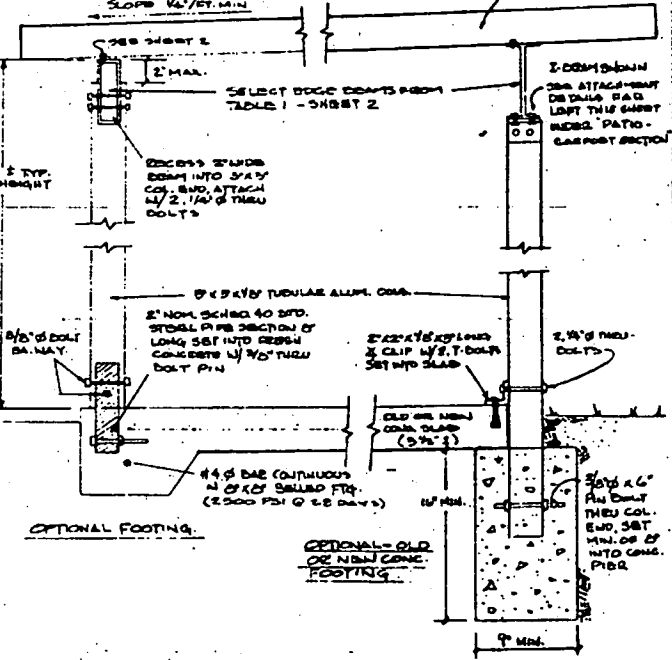 SLOPE 1/4"/FT. MIN
SEE SHEET 2
2" MAX.
SELECT EDGE BEAMS FROM
TABLE 1 - SHEET 2
I-BEAM SHOWN
SEE ATTACHMENT
DETAILS FAR
LEFT THIS SHEET
UNDER "PATIO-
CARPORT SECTION"
TYP.
HEIGHT
RECESS 2" WIDE
BEAM INTO 3"x3"
COL. END, ATTACH
W/ 2, 1/4" Ø THRU
BOLTS
TUBULAR ALUM. COLS.
2" NOM. SCHED. 40 STD.
STEEL PIPE SECTION 8"
LONG SET INTO FRESH
CONCRETE W/ 3/8" THRU
BOLT PIN
3/8" Ø BOLT
EA. WAY.
LONG
CLIP W/ 2, T-BOLTS
SET INTO SLAB
2, 1/4" Ø THRU-
BOLTS
OLD OR NEW
CONC. SLAB
(3 1/2" ±)
#4 Ø BAR CONTINUOUS
IN 8"x8" BELLED FTG.
(2500 PSI @ 28 DAYS)
MIN.
3/8" Ø x 6"
PIN BOLT
THRU COL.
END, SET
MIN. OF 8"
INTO CONC.
PIER
OPTIONAL FOOTING.
OPTIONAL - OLD
OR NEW CONC.
FOOTING
9" MIN.